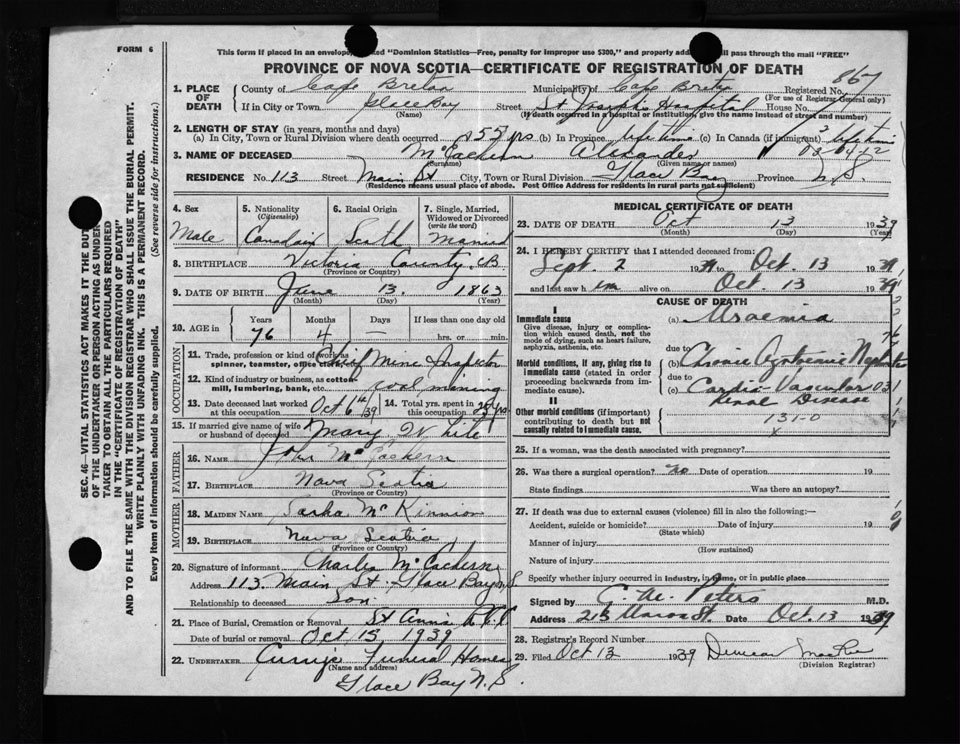 FORM 6
This form if placed in an envelope, marked "Dominion Statistics—Free, penalty for improper use $300," and properly addressed will pass through the mail "FREE"
PROVINCE OF NOVA SCOTIA—CERTIFICATE OF REGISTRATION OF DEATH
867
1. PLACE OF DEATH County of Cape Breton Municipality of Cape Breton Registered No.
(For use of Registrar General only)
If in City or Town Glace Bay Street St Joseph's Hospital House No.
(Name) (If death occurred in a hospital or institution, give the name instead of street and number)
2. LENGTH OF STAY (in years, months and days)
(a) In City, Town or Rural Division where death occurred 55 yrs (b) In Province life time (c) In Canada (if immigrant) life time
3. NAME OF DECEASED McEachern Alexander
(Surname) (Given name or names)
RESIDENCE No. 113 Street Main St City, Town or Rural Division Glace Bay Province N.S.
(Residence means usual place of abode. Post Office Address for residents in rural parts not sufficient)
4. Sex 5. Nationality (Citizenship) 6. Racial Origin 7. Single, Married, Widowed or Divorced (write the word)
Male Canadian Scotch Married
8. BIRTHPLACE Victoria County, C.B.
(Province or Country)
9. DATE OF BIRTH June 13 1863
(Month) (Day) (Year)
10. AGE in Years Months Days If less than one day old
76 4 — hrs. or min.
OCCUPATION
11. Trade, profession or kind of work as spinner, teamster, office clerk, etc. Chief Mine Inspector
12. Kind of industry or business, as cotton mill, lumbering, bank, etc. Coal mining
13. Date deceased last worked at this occupation Oct 6th/39 14. Total yrs. spent in this occupation yrs.
15. If married give name of wife or husband of deceased Mary White
FATHER
16. NAME John McEachern
17. BIRTHPLACE Nova Scotia
(Province or Country)
MOTHER
18. MAIDEN NAME Sarha McKinnon
19. BIRTHPLACE Nova Scotia
(Province or Country)
20. Signature of informant Charles McEachern
Address 113 Main St Glace Bay N.S
Relationship to deceased Son
21. Place of Burial, Cremation or Removal St Anns R.C.C.
Date of burial or removal Oct 15 1939
22. UNDERTAKER Curry's Funeral Home
(Name and address)
Glace Bay N.S.
MEDICAL CERTIFICATE OF DEATH
23. DATE OF DEATH Oct 13 1939
(Month) (Day) (Year)
24. I HEREBY CERTIFY that I attended deceased from:
Sept. 2 1939 to Oct. 13 1939
and last saw him alive on Oct. 13 1939
CAUSE OF DEATH
I
Immediate cause (a) Uraemia
Give disease, injury or complication which caused death, not the mode of dying, such as heart failure, asphyxia, asthenia, etc.
due to
Morbid conditions, if any, giving rise to immediate cause (stated in order proceeding backwards from immediate cause). (b) Chronic Nephritis
due to
(c) Cardio-Vascular Renal Disease
II
Other morbid conditions (if important) contributing to death but not causally related to immediate cause.
131-0
x
25. If a woman, was the death associated with pregnancy?
26. Was there a surgical operation? no Date of operation 19
State findings Was there an autopsy?
27. If death was due to external causes (violence) fill in also the following:—
Accident, suicide or homicide? Date of injury 19
(State which)
Manner of injury
(How sustained)
Nature of injury
Specify whether injury occurred in industry, in home, or in public place
Signed by C.M. Peters M.D.
Address Date Oct. 13 1939
28. Registrar's Record Number
29. Filed Oct 13 1939 Duncan MacRae
(Division Registrar)
SEC. 46—VITAL STATISTICS ACT MAKES IT THE DUTY
OF THE UNDERTAKER OR PERSON ACTING AS UNDERTAKER TO OBTAIN ALL THE PARTICULARS REQUIRED
IN THE "CERTIFICATE OF REGISTRATION OF DEATH"
AND TO FILE THE SAME WITH THE DIVISION REGISTRAR WHO SHALL ISSUE THE BURIAL PERMIT.
WRITE PLAINLY WITH UNFADING INK. THIS IS A PERMANENT RECORD.
Every item of information should be carefully supplied. (See reverse side for instructions.)